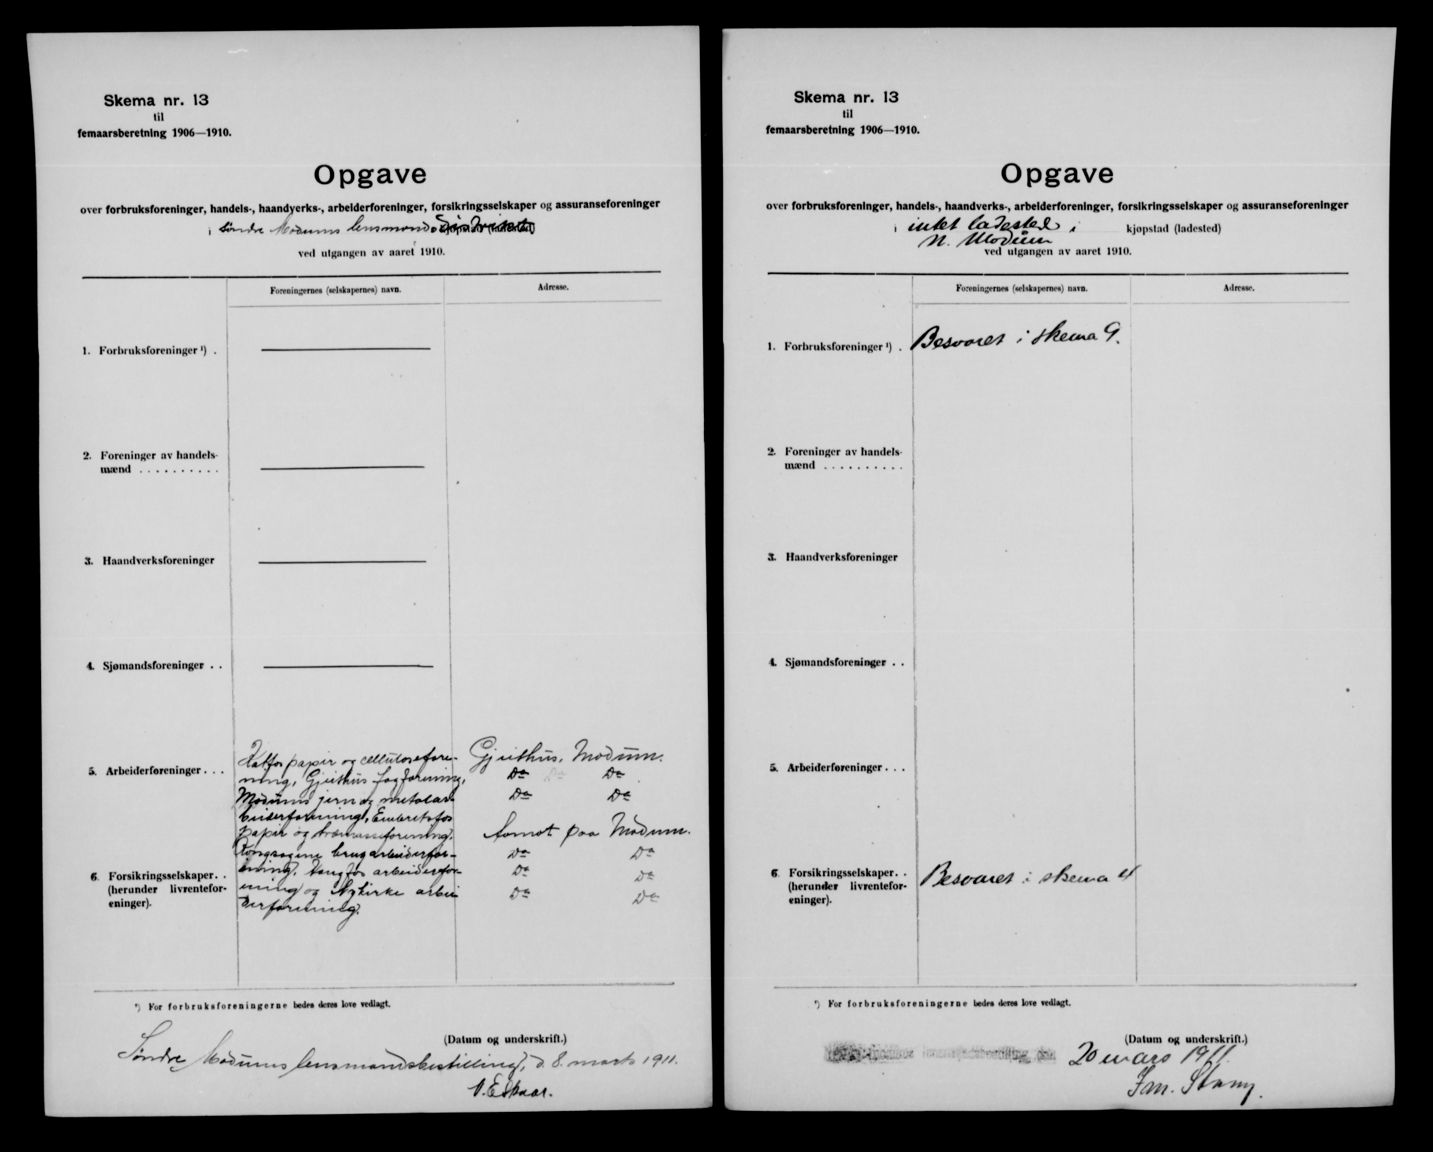 Skema nr. 13
til
femaarsberetning 1906—1910.
Opgave
over forbruksforeninger, handels-, haandverks-, arbeiderforeninger, forsikringsselskaper og assuranseforeninger
i Søndre Modums lensmands
ved utgangen av aaret 1910.
Foreningernes (selskapernes) navn.
Adresse.
1. Forbruksforeninger ¹) .
2. Foreninger av handels-
mænd . . . . . . . . . .
3. Haandverksforeninger
4. Sjømandsforeninger . .
5. Arbeiderføreninger . . .
Katfos papir og cellulosefore-
ning, Gjeithus fagforening,
Modums jern og metalar-
beiderforening, Embretsfos
papir og træmasseforening,
Kongssagene brugarbeiderfor-
ening, Haugfos arbeiderfore-
ning og arbei-
derforening.
Gjeithus, Modum.
Do Do Do
Do Do
Aamot paa Modum.
Do Do
Do Do
Do Do
6. Forsikringsselskaper. .
(herunder livrentefor-
eninger).
¹) For forbruksforeningerne bedes deres love vedlagt.
(Datum og underskrift.)
Søndre Modums lensmandsbestilling, d. 8. marts 1911.
Skema nr. 13
til
femaarsberetning 1906—1910.
Opgave
over forbruksforeninger, handels-, haandverks-, arbeiderforeninger, forsikringsselskaper og assuranseforeninger
i intet ladested i kjøpstad (ladested)
N. Modum
ved utgangen av aaret 1910.
Foreningernes (selskapernes) navn.
Adresse.
1. Forbruksforeninger ¹) .
Besvaret i skema 9.
2. Foreninger av handels-
mænd . . . . . . . . . .
3. Haandverksforeninger
4. Sjømandsforeninger . .
5. Arbeiderføreninger . . .
6. Forsikringsselskaper. .
(herunder livrentefor-
eninger).
Besvaret i skema 4
¹) For forbruksforeningerne bedes deres love vedlagt.
(Datum og underskrift.)
20 mars 1911.